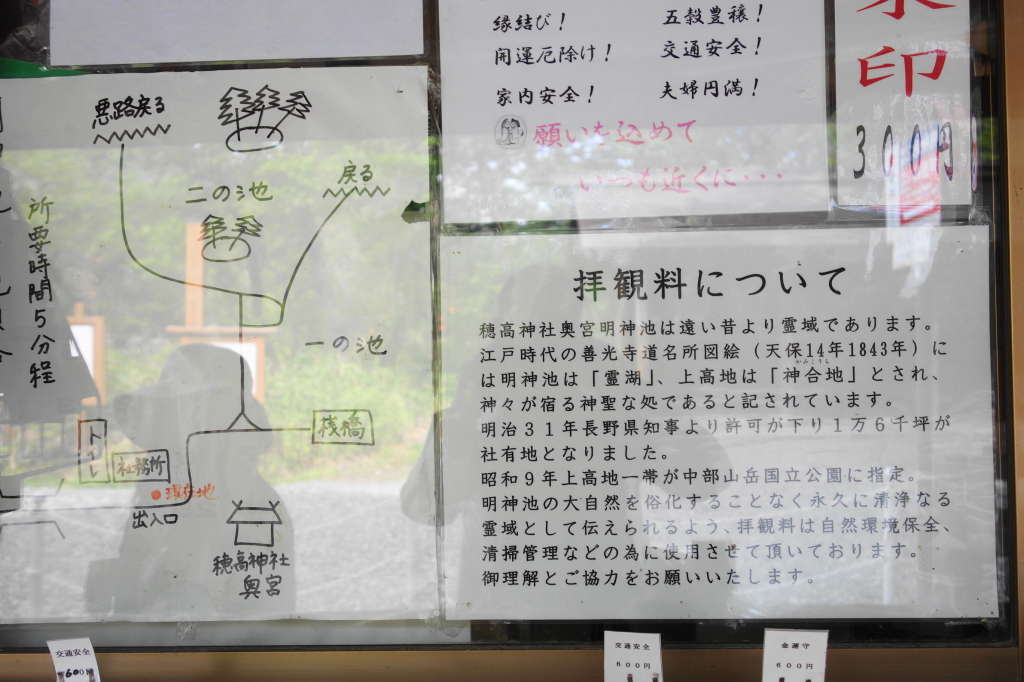 縁結び!
開運厄除け!
家内安全!
五穀豊穣!
交通安全!
夫婦円満!
願いを込めて
いつも近くに・・・
印
300円
悪路戻る
二の池
戻る
所要時間5分程
一の池
桟橋
トイレ
社務所
現在地
出入口
穂高神社
奥宮
拝観料について
穂高神社奥宮明神池は遠い昔より霊域であります。
江戸時代の善光寺道名所図絵(天保14年1843年)に
かみこうち
は明神池は「霊湖」、上高地は「神合地」とされ、
神々が宿る神聖な処であると記されています。
明治31年長野県知事より許可が下り1万6千坪が
社有地となりました。
昭和9年上高地一帯が中部山岳国立公園に指定。
明神池の大自然を俗化することなく永久に清浄なる
霊域として伝えられるよう、拝観料は自然環境保全、
清掃管理などの為に使用させて頂いております。
御理解とご協力をお願いいたします。
交通安全
600円
交通安全
600円
金運守
600円